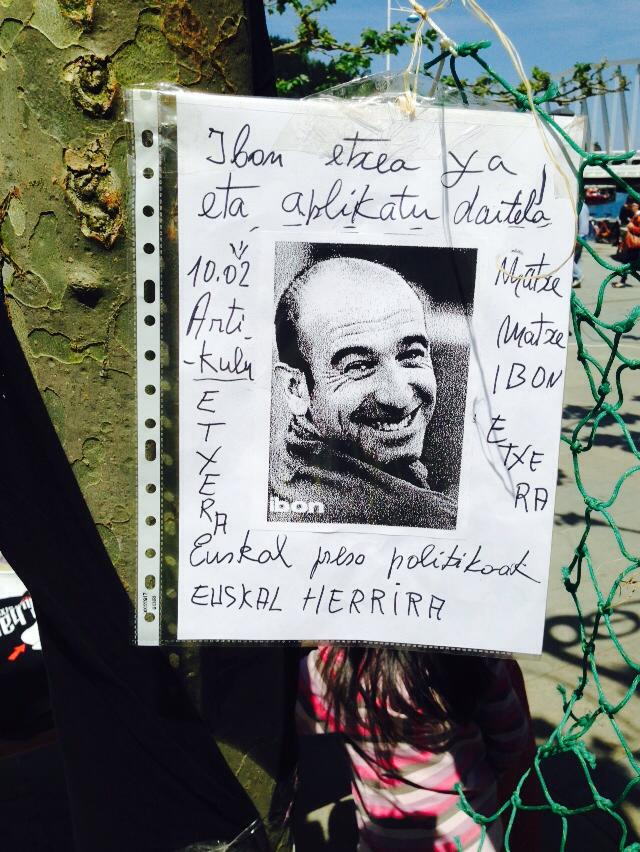 Ibon etxea ya
eta aplikatu daitela!
10.02
Arti-
-kulu
E
T
X
E
R
A
Matxe
Matxe
IBON
E
TXE
RA
ibon
Euskal preso politikoak
EUSKAL HERRIRA